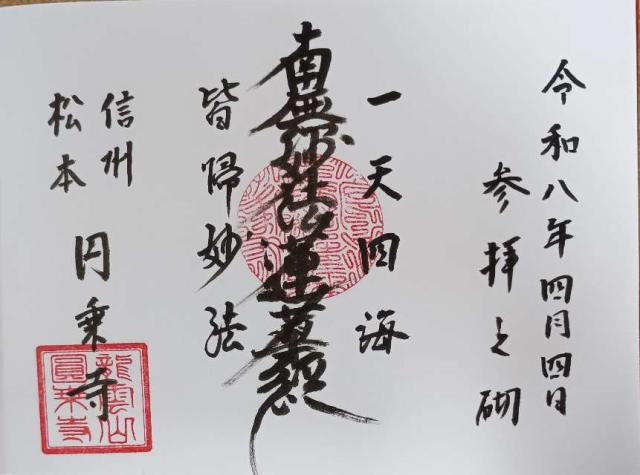 令和八年四月四日
参拝之砌
一天四海
南無妙法蓮華経
皆帰妙法
信州
松本
円乗寺
龍雲山
圓乗寺